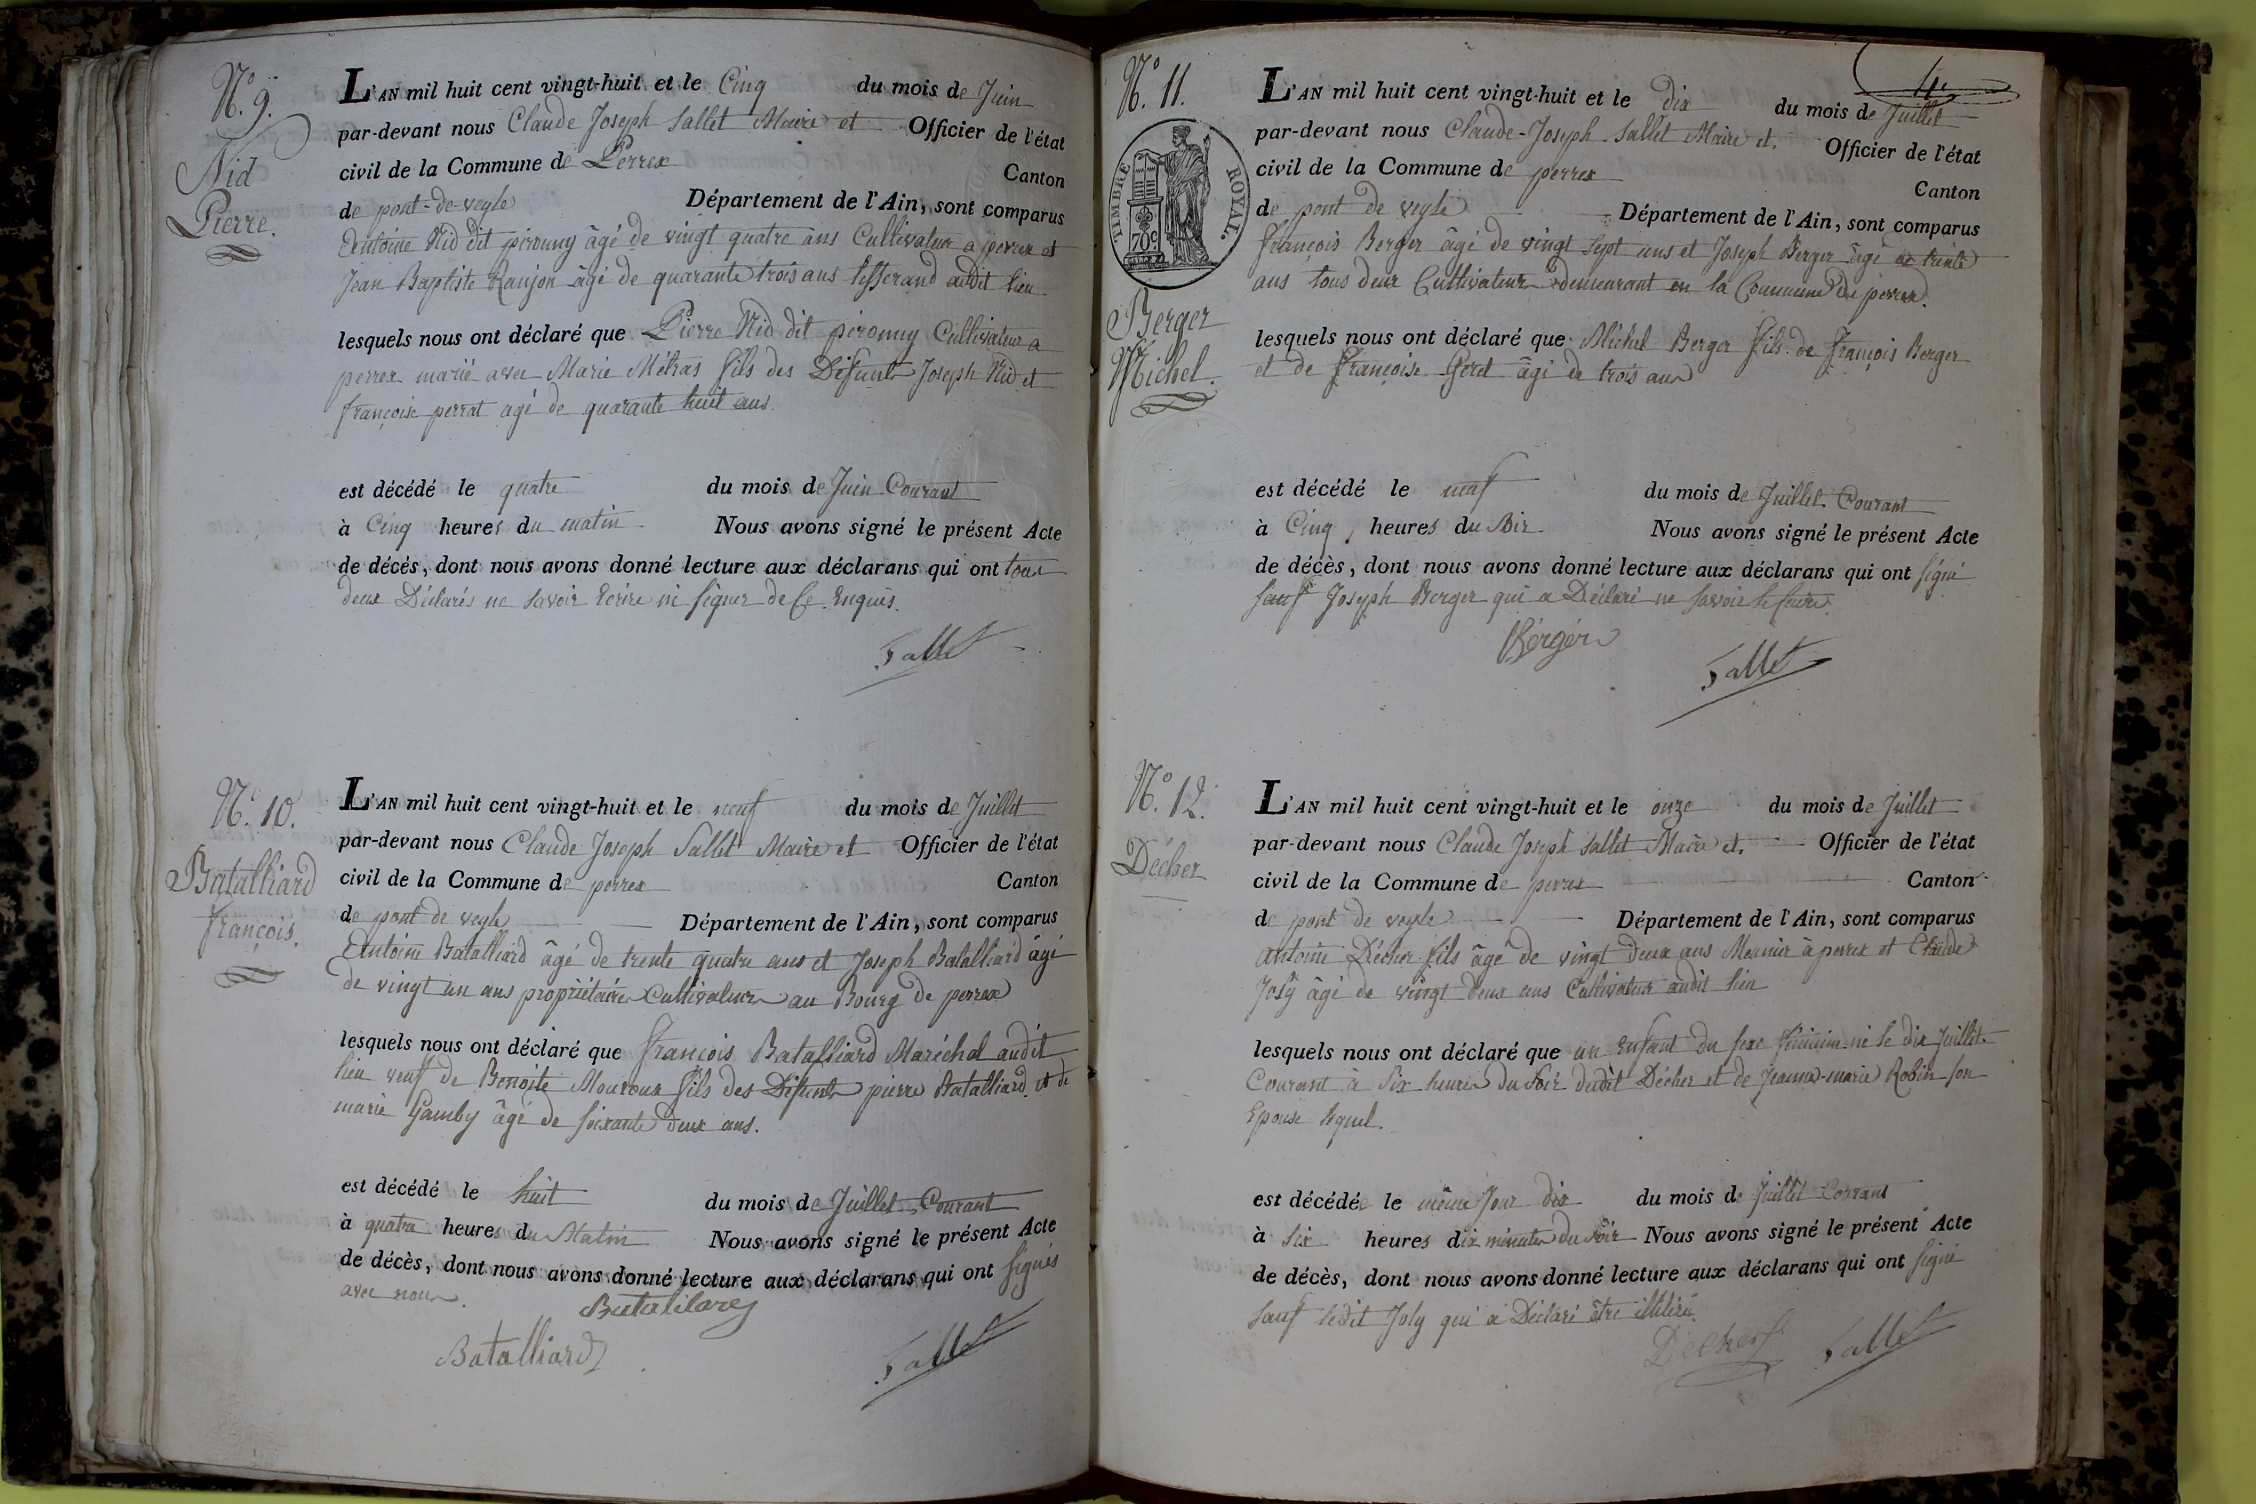 N.° 9.
Nid
Pierre.
L'AN mil huit cent vingt-huit et le Cinq du mois de Juin
par-devant nous Claude Joseph Sallet Maire et Officier de l'état
civil de la Commune de Perrex Canton
de pont-de-veyle Département de l'Ain, sont comparus
Antoine Nid dit pirouny âgé de vingt quatre ans Cultivateur a perrex et
Jean Baptiste Raujon âgé de quarante trois ans tisserand audit lieu
lesquels nous ont déclaré que Pierre Nid dit pirouny Cultivateur a
perrex marié avec Marie Métras fils des Défunts Joseph Nid et
françoise perrat agé de quarante huit ans.
est décédé le quatre du mois de Juin Courant
à Cinq heures du matin Nous avons signé le présent Acte
de décés, dont nous avons donné lecture aux déclarans qui ont tous
deux Déclarés ne savoir Ecrire ni signer de Ce Enquis.
Sallet
N.° 10.
Batalliard
françois.
L'AN mil huit cent vingt-huit et le neuf du mois de Juillet
par-devant nous Claude Joseph Sallet Maire et Officier de l'état
civil de la Commune de perrex Canton
de pont de veyle Département de l'Ain, sont comparus
Antoine Batalliard âgé de trente quatre ans et Joseph Batalliard âgé
de vingt un ans propriétaires Cultivateurs au Bourg de perrex
lesquels nous ont déclaré que françois Batalliard Maréchal audit
lieu veuf de Benoite Mouroux fils des Défunts pierre Batalliard et de
marie Gamby âgé de soixante deux ans.
est décédé le huit du mois de Juillet Courant
à quatre heures du Matin Nous avons signé le présent Acte
de décès, dont nous avons donné lecture aux déclarans qui ont signés
avec nous.
Batalliard
Sallet
4e
N.° 11.
TIMBRE ROYAL.
70c
Berger
Michel.
L'AN mil huit cent vingt-huit et le dix du mois de Juillet
par-devant nous Claude-Joseph Sallet Maire et. Officier de l'état
civil de la Commune de perrex Canton
de pont de veyle Département de l'Ain, sont comparus
françois Berger âgé de vingt sept ans et Joseph Berger âgé de trente
ans tous deux Cultivateurs demeurant en la Commune de perrex.
lesquels nous ont déclaré que Michel Berger fils de françois Berger
et de françoise Geret âgé de trois ans
est décédé le neuf du mois de Juillet Courant
à Cinq heures du Soir Nous avons signé le présent Acte
de décès, dont nous avons donné lecture aux déclarans qui ont signé
sauf Joseph Berger qui a Déclaré ne savoir le faire.
Bérgér
Sallet
N.° 12.
Décher
L'AN mil huit cent vingt-huit et le onze du mois de Juillet
par-devant nous Claude Joseph Sallet Maire et. Officier de l'état
civil de la Commune de perrex Canton
de pont de veyle Département de l'Ain, sont comparus
antoine Décher fils âgé de vingt deux ans Meunier à perrex et Claude
Joly âgé de vingt deux ans Cultivateur audit lieu
lesquels nous ont déclaré que un Enfant du sexe féminin né le dix Juillet
Courant à Six heures du Soir dudit Décher et de Jeanne-marie Robin son
Epouse lequel.
est décédée le même Jour dix du mois de Juillet Courant
à Six heures dix minutes du Soir Nous avons signé le présent Acte
de décès, dont nous avons donné lecture aux déclarans qui ont signé
sauf ledit Joly qui a Déclaré être illiteré.
Décher
Sallet